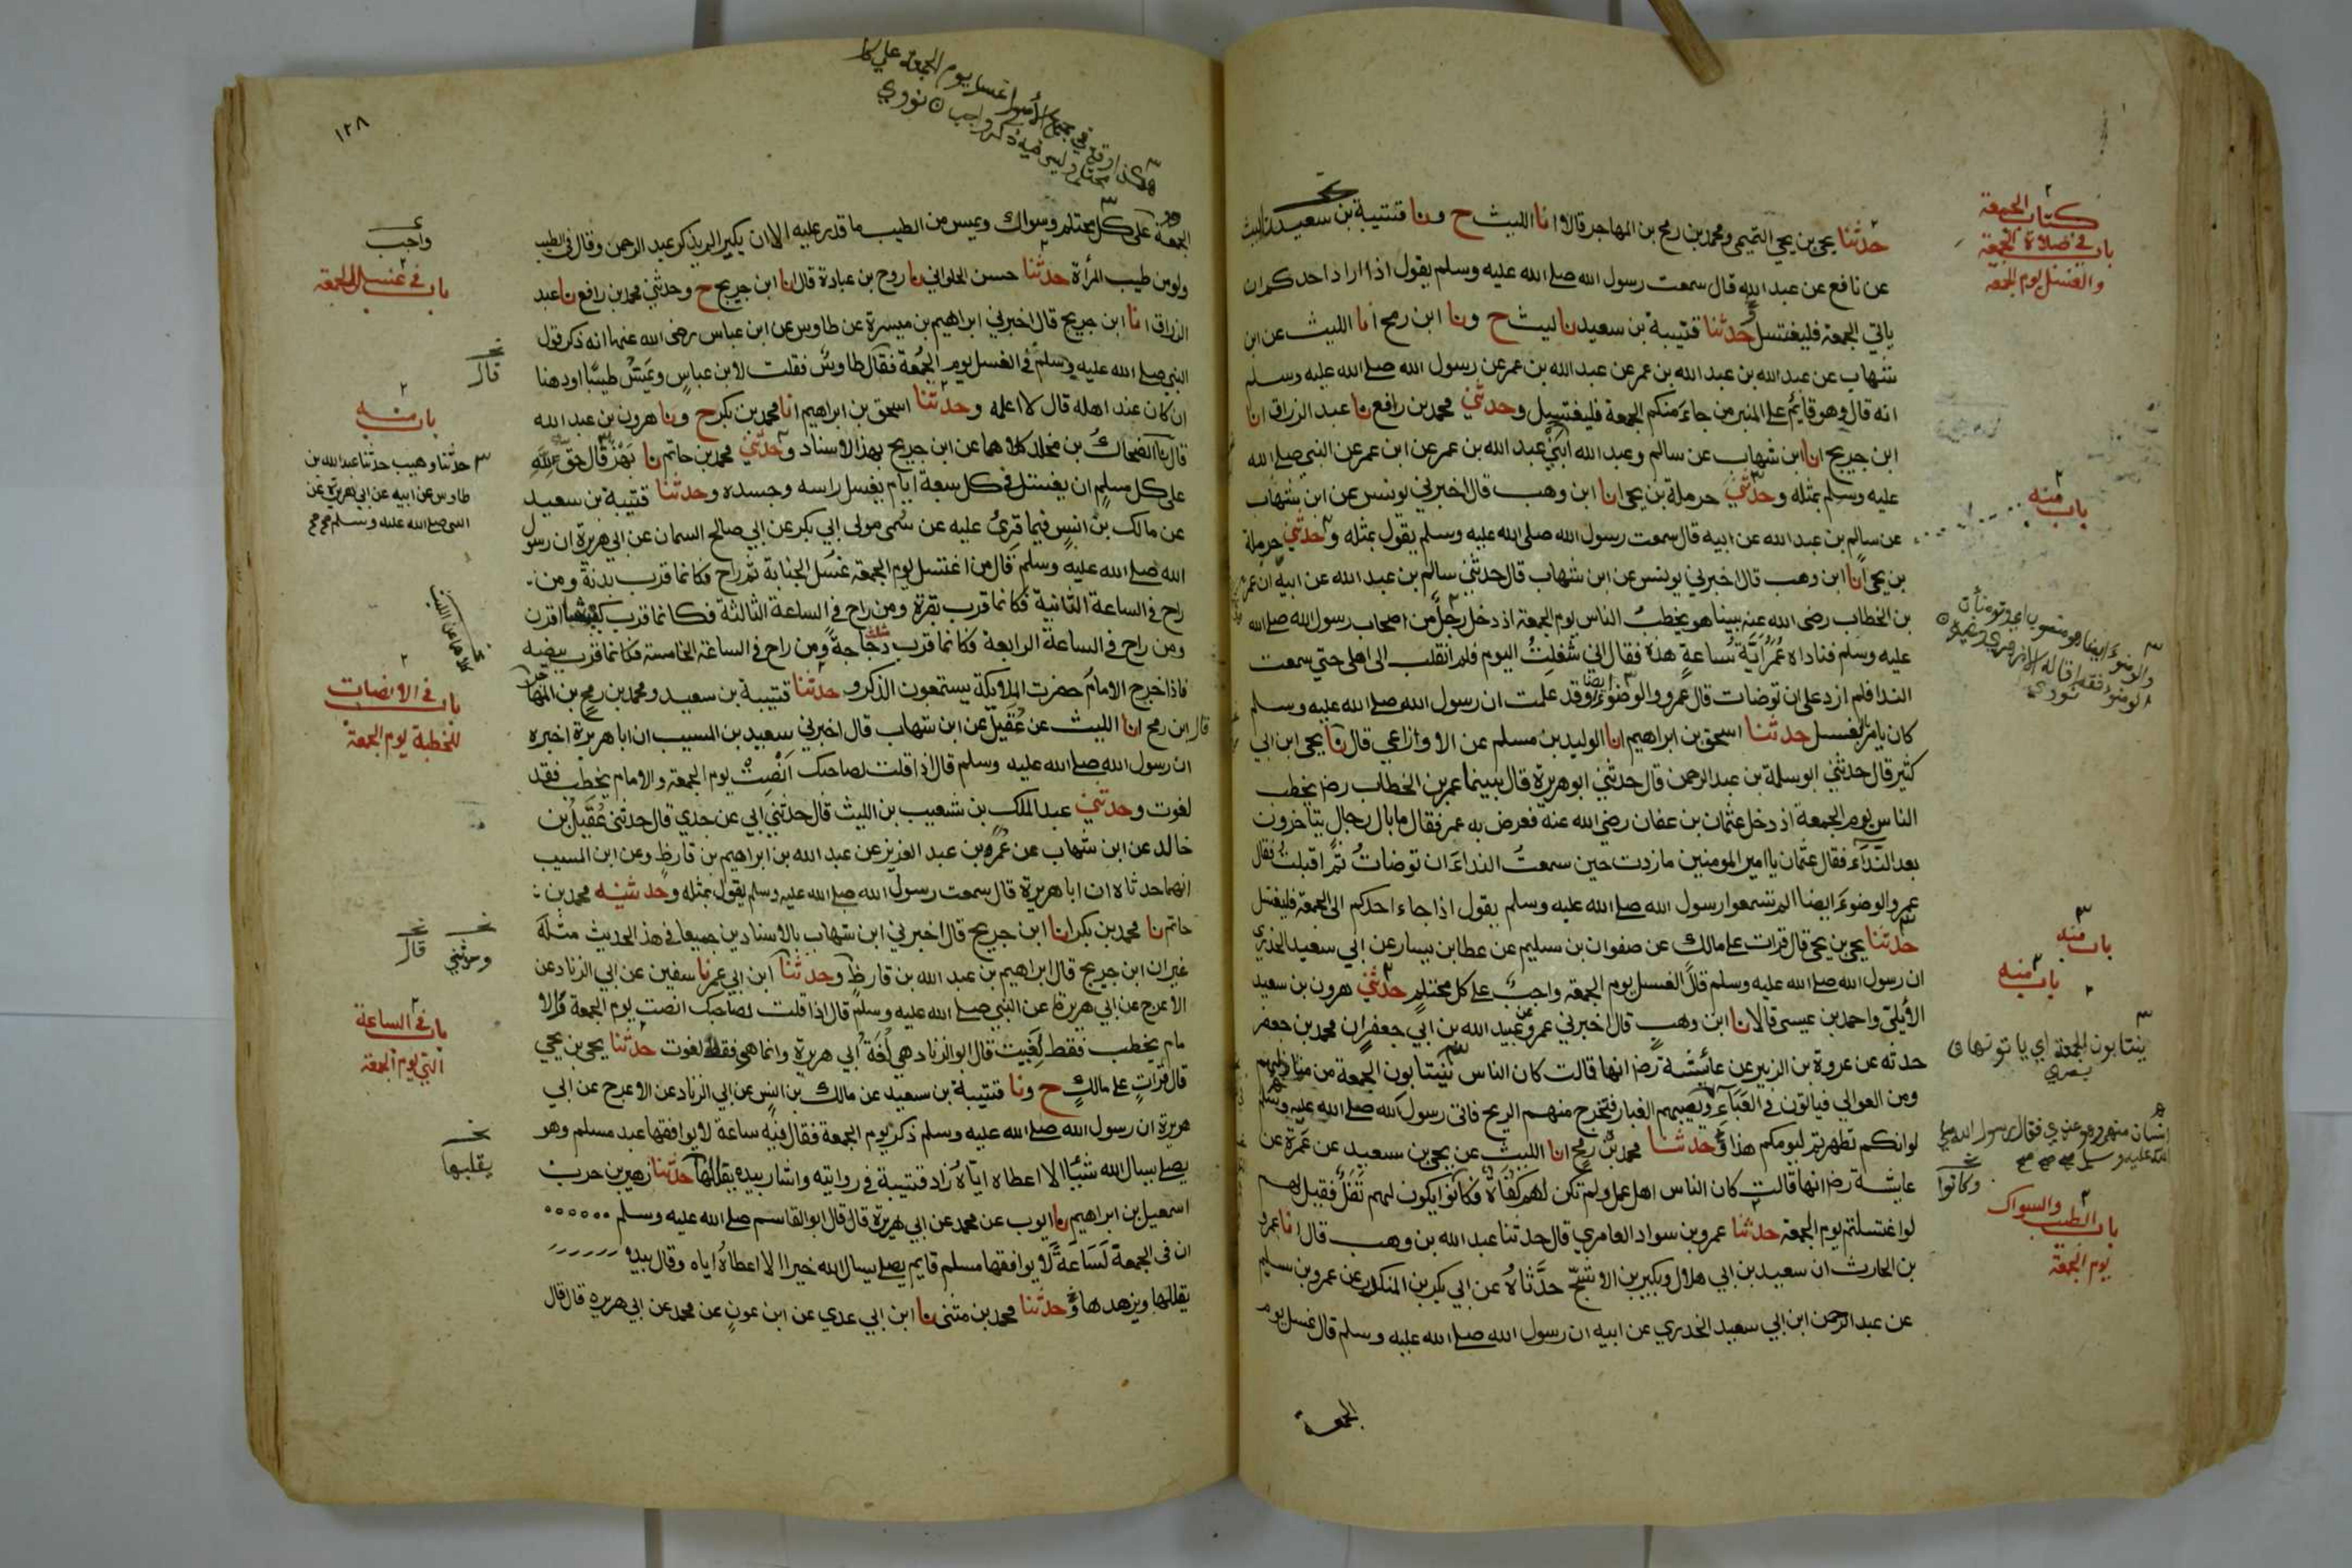 كتاب الجمعة
باب في صلاة الجمعة
والغسل يوم الجمعة
حدثنا يحيى بن يحيى التميمي ومحمد بن رمح بن المهاجر قالا انا الليث ح ونا قتيبة بن سعيد نا ليث
عن نافع عن عبد الله قال سمعت رسول الله صلى الله عليه وسلم يقول اذا اراد احدكم ان
ياتي الجمعة فليغتسل حدثنا قتيبة بن سعيد نا ليث ح ونا ابن رمح انا الليث عن ابن
شهاب عن عبد الله بن عبد الله بن عمر عن عبد الله بن عمر عن رسول الله صلى الله عليه وسلم
انه قال وهو قايم على المنبر من جاء منكم الجمعة فليغتسل وحدثني محمد بن رافع نا عبد الرزاق انا
ابن جريج انا ابن شهاب عن سالم وعبد الله ابني عبد الله بن عمر عن ابن عمر عن النبي صلى الله
عليه وسلم بمثله وحدثني حرملة بن يحيى انا ابن وهب قال اخبرني يونس عن ابن شهاب
باب منه
عن سالم بن عبد الله عن ابيه قال سمعت رسول الله صلى الله عليه وسلم يقول بمثله وحدثني حرملة
بن يحيى انا ابن وهب قال اخبرني يونس عن ابن شهاب قال حدثني سالم بن عبد الله عن ابيه ان عمر
بن الخطاب رضى الله عنه بينا هو يخطب الناس يوم الجمعة اذ دخل رجل من اصحاب رسول الله صلى الله
عليه وسلم فناداه عمر اية ساعة هذه فقال اني شغلت اليوم فلم انقلب الى اهلى حتي سمعت
الندا فلم ازد على ان توضات قال عمر والوضوء ايضا وقد علمت ان رسول الله صلى الله عليه وسلم
كان يامر بالغسل حدثنا اسحق بن ابراهيم انا الوليد بن مسلم عن الاوزاعي قال نا يحيى ابن ابي
كثير قال حدثني ابو سلمة بن عبد الرحمن قال حدثني ابو هريرة قال بينما عمر بن الخطاب رضه يخطب
الناس يوم الجمعة اذ دخل عثمان بن عفان رضي الله عنه فعرض به عمر فقال ما بال رجال يتاخرون
بعد النداء فقال عثمان يا امير المومنين ما زدت حين سمعت النداء ان توضات ثم اقبلت فقال
عمر والوضوء ايضا الم تسمعوا رسول الله صلى الله عليه وسلم يقول اذا جاء احدكم الى الجمعة فليغتسل
باب منه
حدثنا يحيى بن يحيى قال قرات على مالك عن صفوان بن سليم عن عطا بن يسار عن ابي سعيد الخدري
باب منه
ان رسول الله صلى الله عليه وسلم قال الغسل يوم الجمعة واجب على كل محتلم حدثني هرون بن سعيد
الأيلي واحمد بن عيسى قالا نا ابن وهب قال اخبرني عمرو عن عبيد الله بن ابي جعفر ان محمد بن جعفر
ينتابون الجمعة اي ياتونها
حدثه عن عروة بن الزبير عن عائشة رضه انها قالت كان الناس ينتابون الجمعة من منازلهم
ومن العوالي فياتون في العباء ويصيبهم الغبار فتخرج منهم الريح فاتى رسول الله صلى الله عليه وسلم
انسان منهم وهو عندي فقال رسول الله صلى
الله عليه وسلم صح صح صح
لو انكم تطهرتم ليومكم هذا وحدثنا محمد بن رمح انا الليث عن يحيى بن سعيد عن عمرة عن
عايشة رضه انها قالت كان الناس اهل عمل ولم تكن لهم كفاة فكانوا يكون لهم تفل فقيل لهم
وكانوا
باب الطيب والسواك
يوم الجمعة
لو اغتسلتم يوم الجمعة حدثنا عمرو بن سواد العامري قال حدثنا عبد الله بن وهب قال انا عمرو
بن الحارث ان سعيد بن ابي هلال وبكير بن الاشج حدثاه عن ابي بكر بن المنكدر عن عمرو بن سليم
عن عبد الرحمن ابن ابي سعيد الخدري عن ابيه ان رسول الله صلى الله عليه وسلم قال غسل يوم
الجمعة
١٢٨
الجمعة على كل محتلم وسواك ويمس من الطيب ما قدر عليه الا ان بكيرا لم يذكر عبد الرحمن وقال في الطيب
واجب
باب في غسل الجمعة
ولو من طيب المرأة حدثنا حسن الحلواني نا روح بن عبادة قال انا ابن جريج ح وحدثني محمد بن رافع نا عبد
الرزاق انا ابن جريج قال اخبرني ابراهيم بن ميسرة عن طاوس عن ابن عباس رضى الله عنهما انه ذكر قول
النبي صلى الله عليه وسلم في الغسل يوم الجمعة فقال طاوس فقلت لابن عباس ويمس طيبا او دهنا
قال
ان كان عند اهله قال لا اعلمه وحدثنا اسحق بن ابراهيم انا محمد بن بكر ح ونا هرون بن عبد الله
باب منه
قال نا الضحاك بن مخلد كلاهما عن ابن جريج بهذا الاسناد وحدثني محمد بن حاتم نا بهز قال حق لله
حدثنا وهيب حدثنا عبد الله بن
طاوس عن ابيه عن ابي هريرة عن
النبي صلى الله عليه وسلم صح صح
على كل مسلم ان يغتسل في كل سبعة ايام يغسل راسه وجسده وحدثنا قتيبة بن سعيد
عن مالك بن انس فيما قرئ عليه عن سمى مولى ابي بكر عن ابي صالح السمان عن ابي هريرة ان رسول
الله صلى الله عليه وسلم قال من اغتسل يوم الجمعة غسل الجنابة ثم راح فكانما قرب بدنة ومن
راح في الساعة الثانية فكانما قرب بقرة ومن راح في الساعة الثالثة فكانما قرب كبشا اقرن
ومن راح في الساعة الرابعة فكانما قرب دجاجة ومن راح في الساعة الخامسة فكانما قرب بيضة
فاذا خرج الامام حضرت الملايكة يستمعون الذكر وحدثنا قتيبة بن سعيد ومحمد بن رمح بن المهاجر
باب في الانصات
للخطبة يوم الجمعة
قال ابن رمح انا الليث عن عقيل عن ابن شهاب قال اخبرني سعيد بن المسيب ان ابا هريرة اخبره
ان رسول الله صلى الله عليه وسلم قال اذا قلت لصاحبك انصت يوم الجمعة والامام يخطب فقد
لغوت وحدثني عبد الملك بن شعيب بن الليث قال حدثني ابي عن جدي قال حدثني عقيل بن
خالد عن ابن شهاب عن عمر بن عبد العزيز عن عبد الله بن ابراهيم بن قارظ وعن ابن المسيب
انهما حدثاه ان ابا هريرة قال سمعت رسول الله صلى الله عليه وسلم يقول بمثله وحدثنيه محمد بن
حاتم نا محمد بن بكر انا ابن جريج قال اخبرني ابن شهاب بالاسنادين جميعا في هذا الحديث مثله
وحدثني قال
غير ان ابن جريج قال ابراهيم بن عبد الله بن قارظ وحدثنا ابن ابي عمر نا سفين عن ابي الزناد عن
الاعرج عن ابي هريرة عن النبي صلى الله عليه وسلم قال اذا قلت لصاحبك انصت يوم الجمعة والا
باب في الساعة
التي يوم الجمعة
مام يخطب فقط لغيت قال ابو الزناد هي لغة ابي هريرة وانما هي فقد لغوت حدثنا يحيى بن يحيى
قال قرات على مالك ح ونا قتيبة بن سعيد عن مالك بن انس عن ابي الزناد عن الاعرج عن ابي
هريرة ان رسول الله صلى الله عليه وسلم ذكر يوم الجمعة فقال فيه ساعة لا يوافقها عبد مسلم وهو
يصلى يسال الله شيئا الا اعطاه اياه زاد قتيبة في روايته واشار بيده يقللها حدثنا زهير بن حرب
يقلبها
اسمعيل بن ابراهيم نا ايوب عن محمد عن ابي هريرة قال قال ابو القاسم صلى الله عليه وسلم
ان في الجمعة لساعة لا يوافقها مسلم قايم يصلى يسال الله خيرا الا اعطاه اياه وقال بيده
يقللها ويزهدها وحدثنا محمد بن مثنى نا ابن ابي عدي عن ابن عون عن محمد عن ابي هريره قال قال